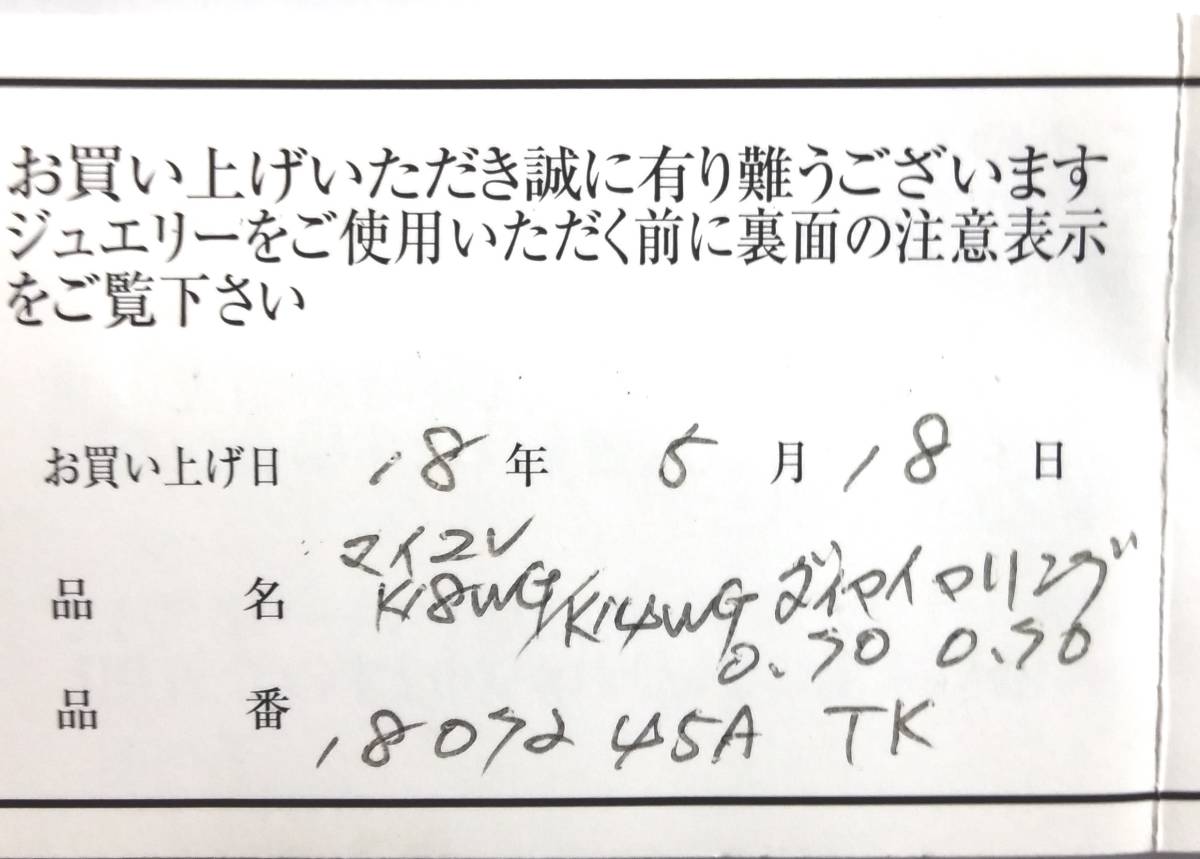 お買い上げいただき誠に有り難うございます
ジュエリーをご使用いただく前に裏面の注意表示
をご覧下さい
お買い上げ日 18年 5月18日
マイコレ
品名 K18WG/K14WG ダイヤイヤリング
0.70 0.70
品番 18072 45A TK